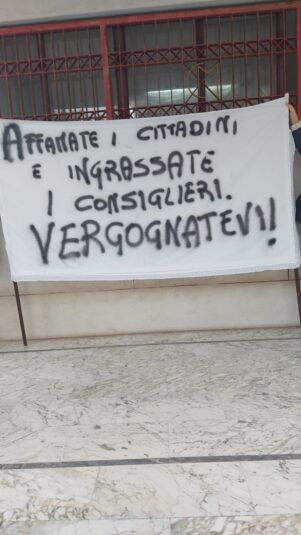 AFFAMATE I CITTADINI
E INGRASSATE
I CONSIGLIERI.
VERGOGNATEVI!